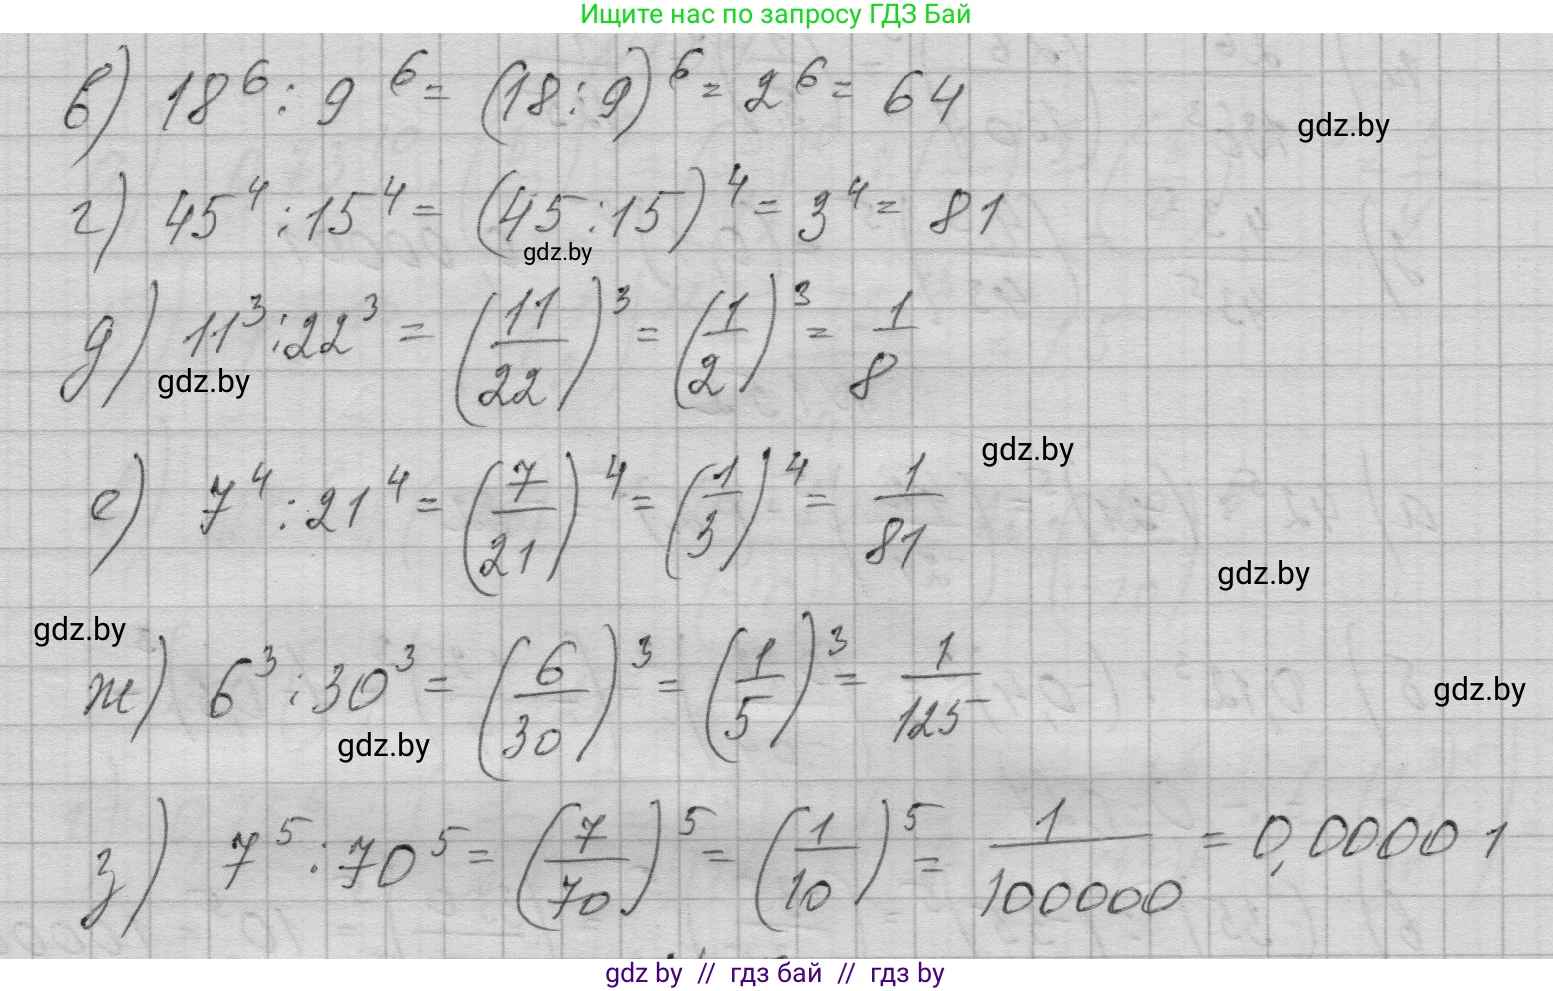 Ищите нас по запросу ГДЗ Бай
в) 18⁶ : 9⁶ = (18 : 9)⁶ = 2⁶ = 64
gdz.by
г) 45⁴ : 15⁴ = (45 : 15)⁴ = 3⁴ = 81
gdz.by
д) 11³ : 22³ = (11/22)³ = (1/2)³ = 1/8
gdz.by
gdz.by
е) 7⁴ : 21⁴ = (7/21)⁴ = (1/3)⁴ = 1/81
gdz.by
gdz.by
ж) 6³ : 30³ = (6/30)³ = (1/5)³ = 1/125
gdz.by
gdz.by
з) 7⁵ : 70⁵ = (7/70)⁵ = (1/10)⁵ = 1/100000 = 0,00001
gdz by // гдз бай // гдз by